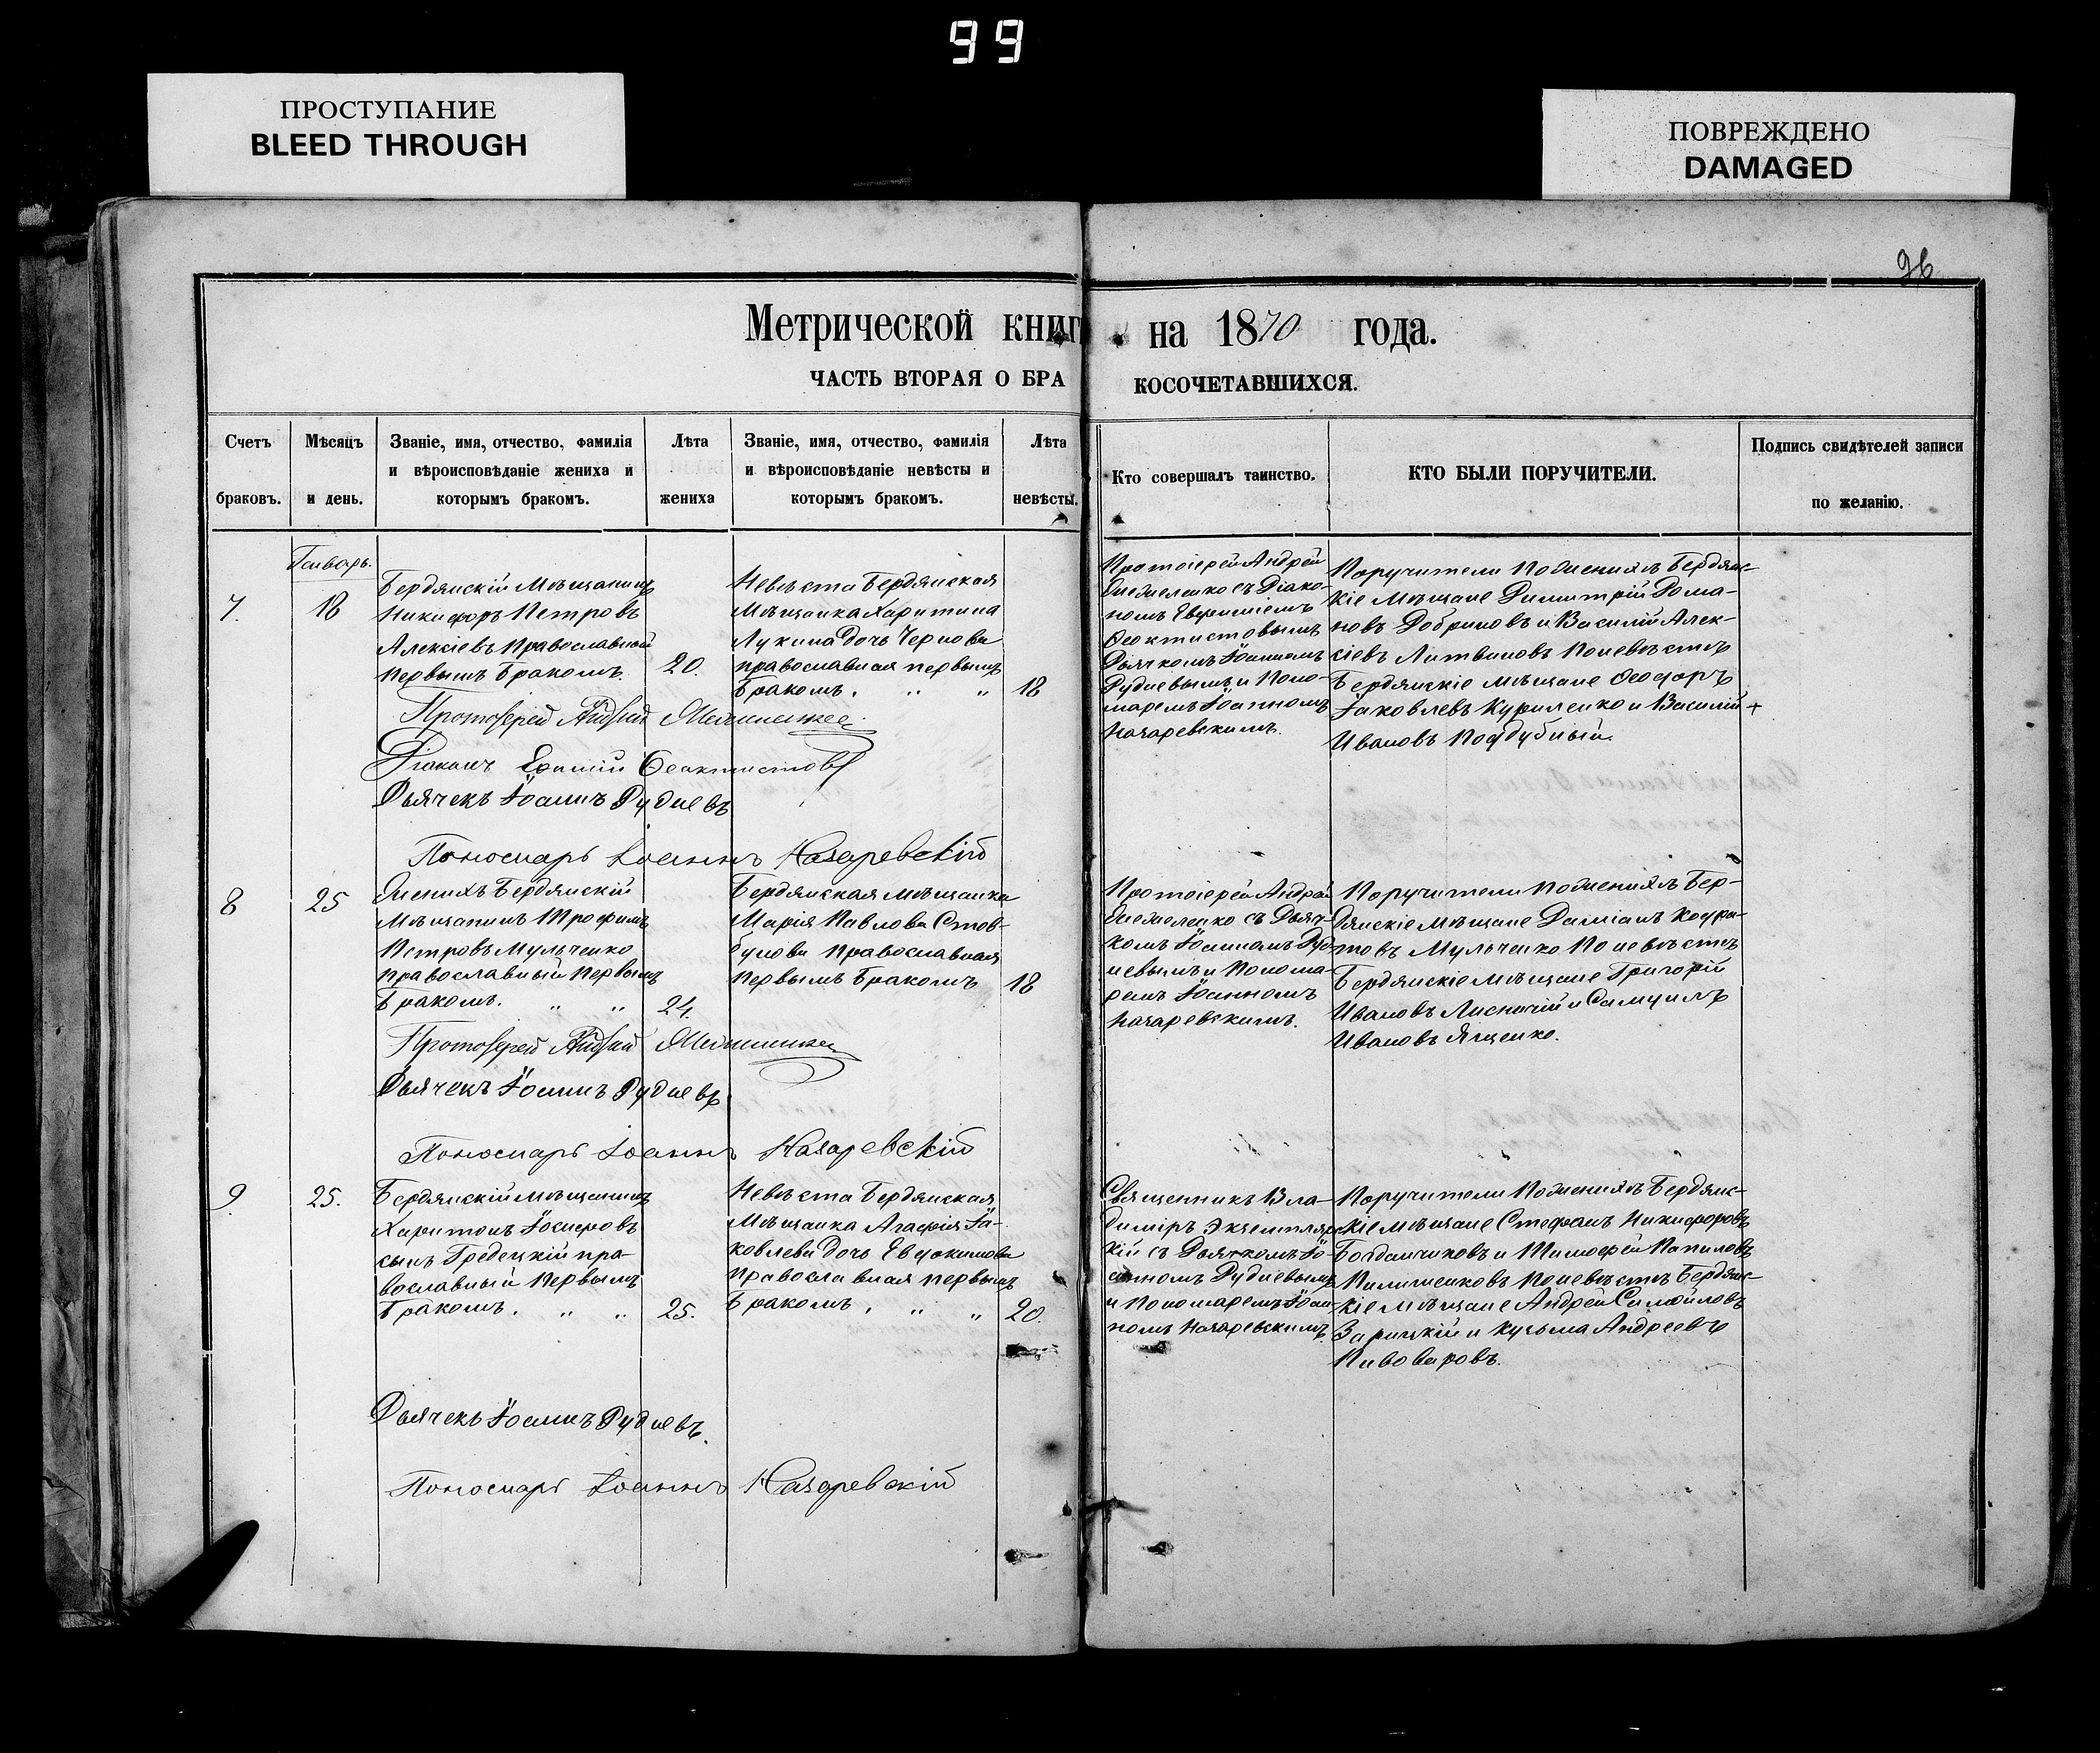 99
ПРОСТУПАНИЕ
BLEED THROUGH
ПОВРЕЖДЕНО
DAMAGED
96
Метрической книг на 1870 года.
ЧАСТЬ ВТОРАЯ О БРАКОСОЧЕТАВШИХСЯ.
Счетъ
браковъ.
Мѣсяцъ
и день.
Званіе, имя, отчество, фамилія
и вѣроисповѣданіе жениха и
которымъ бракомъ.
Лѣта
жениха
Званіе, имя, отчество, фамилія
и вѣроисповѣданіе невѣсты и
которымъ бракомъ.
Лѣта
невѣсты.
Кто совершалъ таинство.
КТО БЫЛИ ПОРУЧИТЕЛИ.
Подпись свидѣтелей записи
по желанію.
Январь.
7.
18
Бердянскій Мѣщанинъ
Никифоръ Петровъ
Алексіевъ Православной
первымъ бракомъ.
20.
Невѣста Бердянская
Мѣщанка Харитина
Лукина дочь Чернова
православная первымъ
бракомъ. " "
18
Протоіерей Андрей
съ Діако-
номъ Евфиміемъ
Феоктистовымъ
Дьячкомъ Іоанномъ
Рудневымъ и Поно-
маремъ Іоанномъ
Назаревскимъ.
Поручители по женихѣ Бердянс-
кіе Мѣщане Димитрій Рома-
новъ Добриновъ и Василій Алек-
сіевъ Литвиновъ по невѣстѣ
Бердянскіе мѣщане Феодоръ
Іаковлевъ Куриленко и Василій +
Ивановъ Поддубный.
Протоіерей Андрей
Діаконъ Феоктистовъ
Дьячекъ Іоаннъ Рудневъ
Пономарь Іоаннъ Назаревскій
8
25
Женихъ Бердянскій
Мѣщанинъ Трофимъ
Петровъ Мульченко
православный первымъ
бракомъ. " "
24.
Бердянская мѣщанка
Марія Павлова Стов-
бунова православная
первымъ бракомъ
18
Протоіерей Андрей
съ Дьяч-
комъ Іоанномъ Руд-
невымъ и Понома-
ремъ Іоанномъ
Назаревскимъ.
Поручители по женихѣ Бер-
дянскіе мѣщане Даміанъ Кодра-
товъ Мульченко по невѣстѣ
Бердянскіе мѣщане Григорій
Ивановъ и Самуилъ
Ивановъ Ященко.
Протоіерей Андрей
Дьячекъ Іоаннъ Рудневъ
Пономарь Іоаннъ Назаревскій
9
25.
Бердянскій мѣщанинъ
Харитонъ Іосифовъ
сынъ Гредецкій пра-
вославный первымъ
бракомъ. " "
25.
Невѣста Бердянская
Мѣщанка Агафія Іа-
ковлева дочь Евдокимова
православная первымъ
бракомъ. " "
20.
Священникъ Вла-
диміръ Экземпляр-
кій съ Дьячкомъ Іо-
анномъ Рудневымъ
и Пономаремъ Іоан-
номъ Назаревскимъ.
Поручители по женихѣ Бердянс-
кіе мѣщане Стефанъ Никифоровъ
Богданчиковъ и Тимофей
по невѣстѣ Бердянс-
кіе мѣщане Андрей Самойловъ
Зарицкій и Кузьма Андреевъ
Пивоваровъ.
Дьячекъ Іоаннъ Рудневъ.
Пономарь Іоаннъ Назаревскій